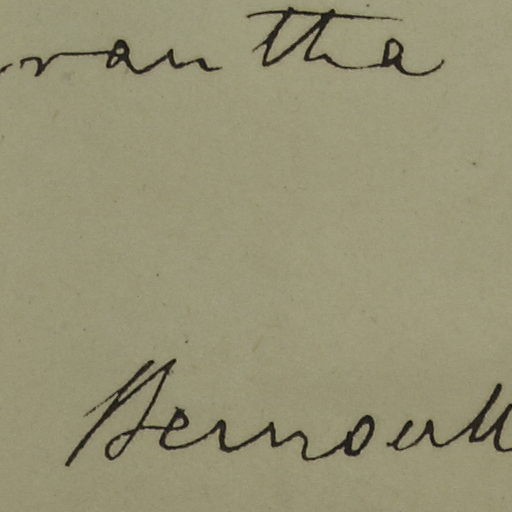 rantha
Bernoull